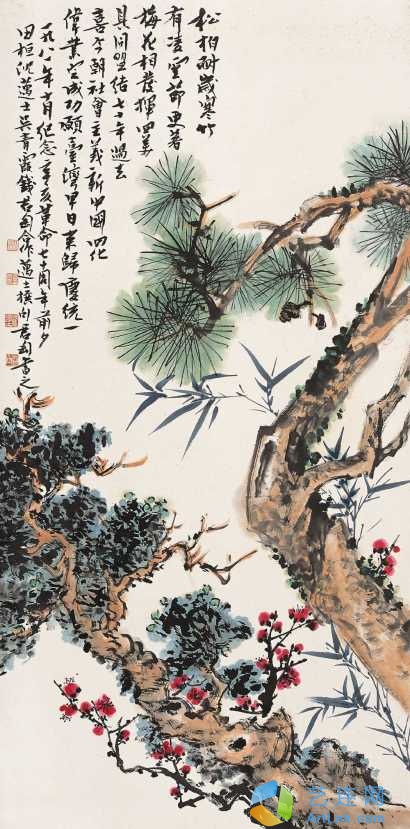 松柏耐歲寒竹
有凌雲節更著
梅花相發揮四美
具同盟結七十年過去
喜今朝社會主義新中國四化
偉業定成功願臺灣早日來歸慶統一
一九八一年十月紀念辛亥革命七十周年前夕
田桓沈邁士吳青霞錢君匋合作邁士撰句君匋書之